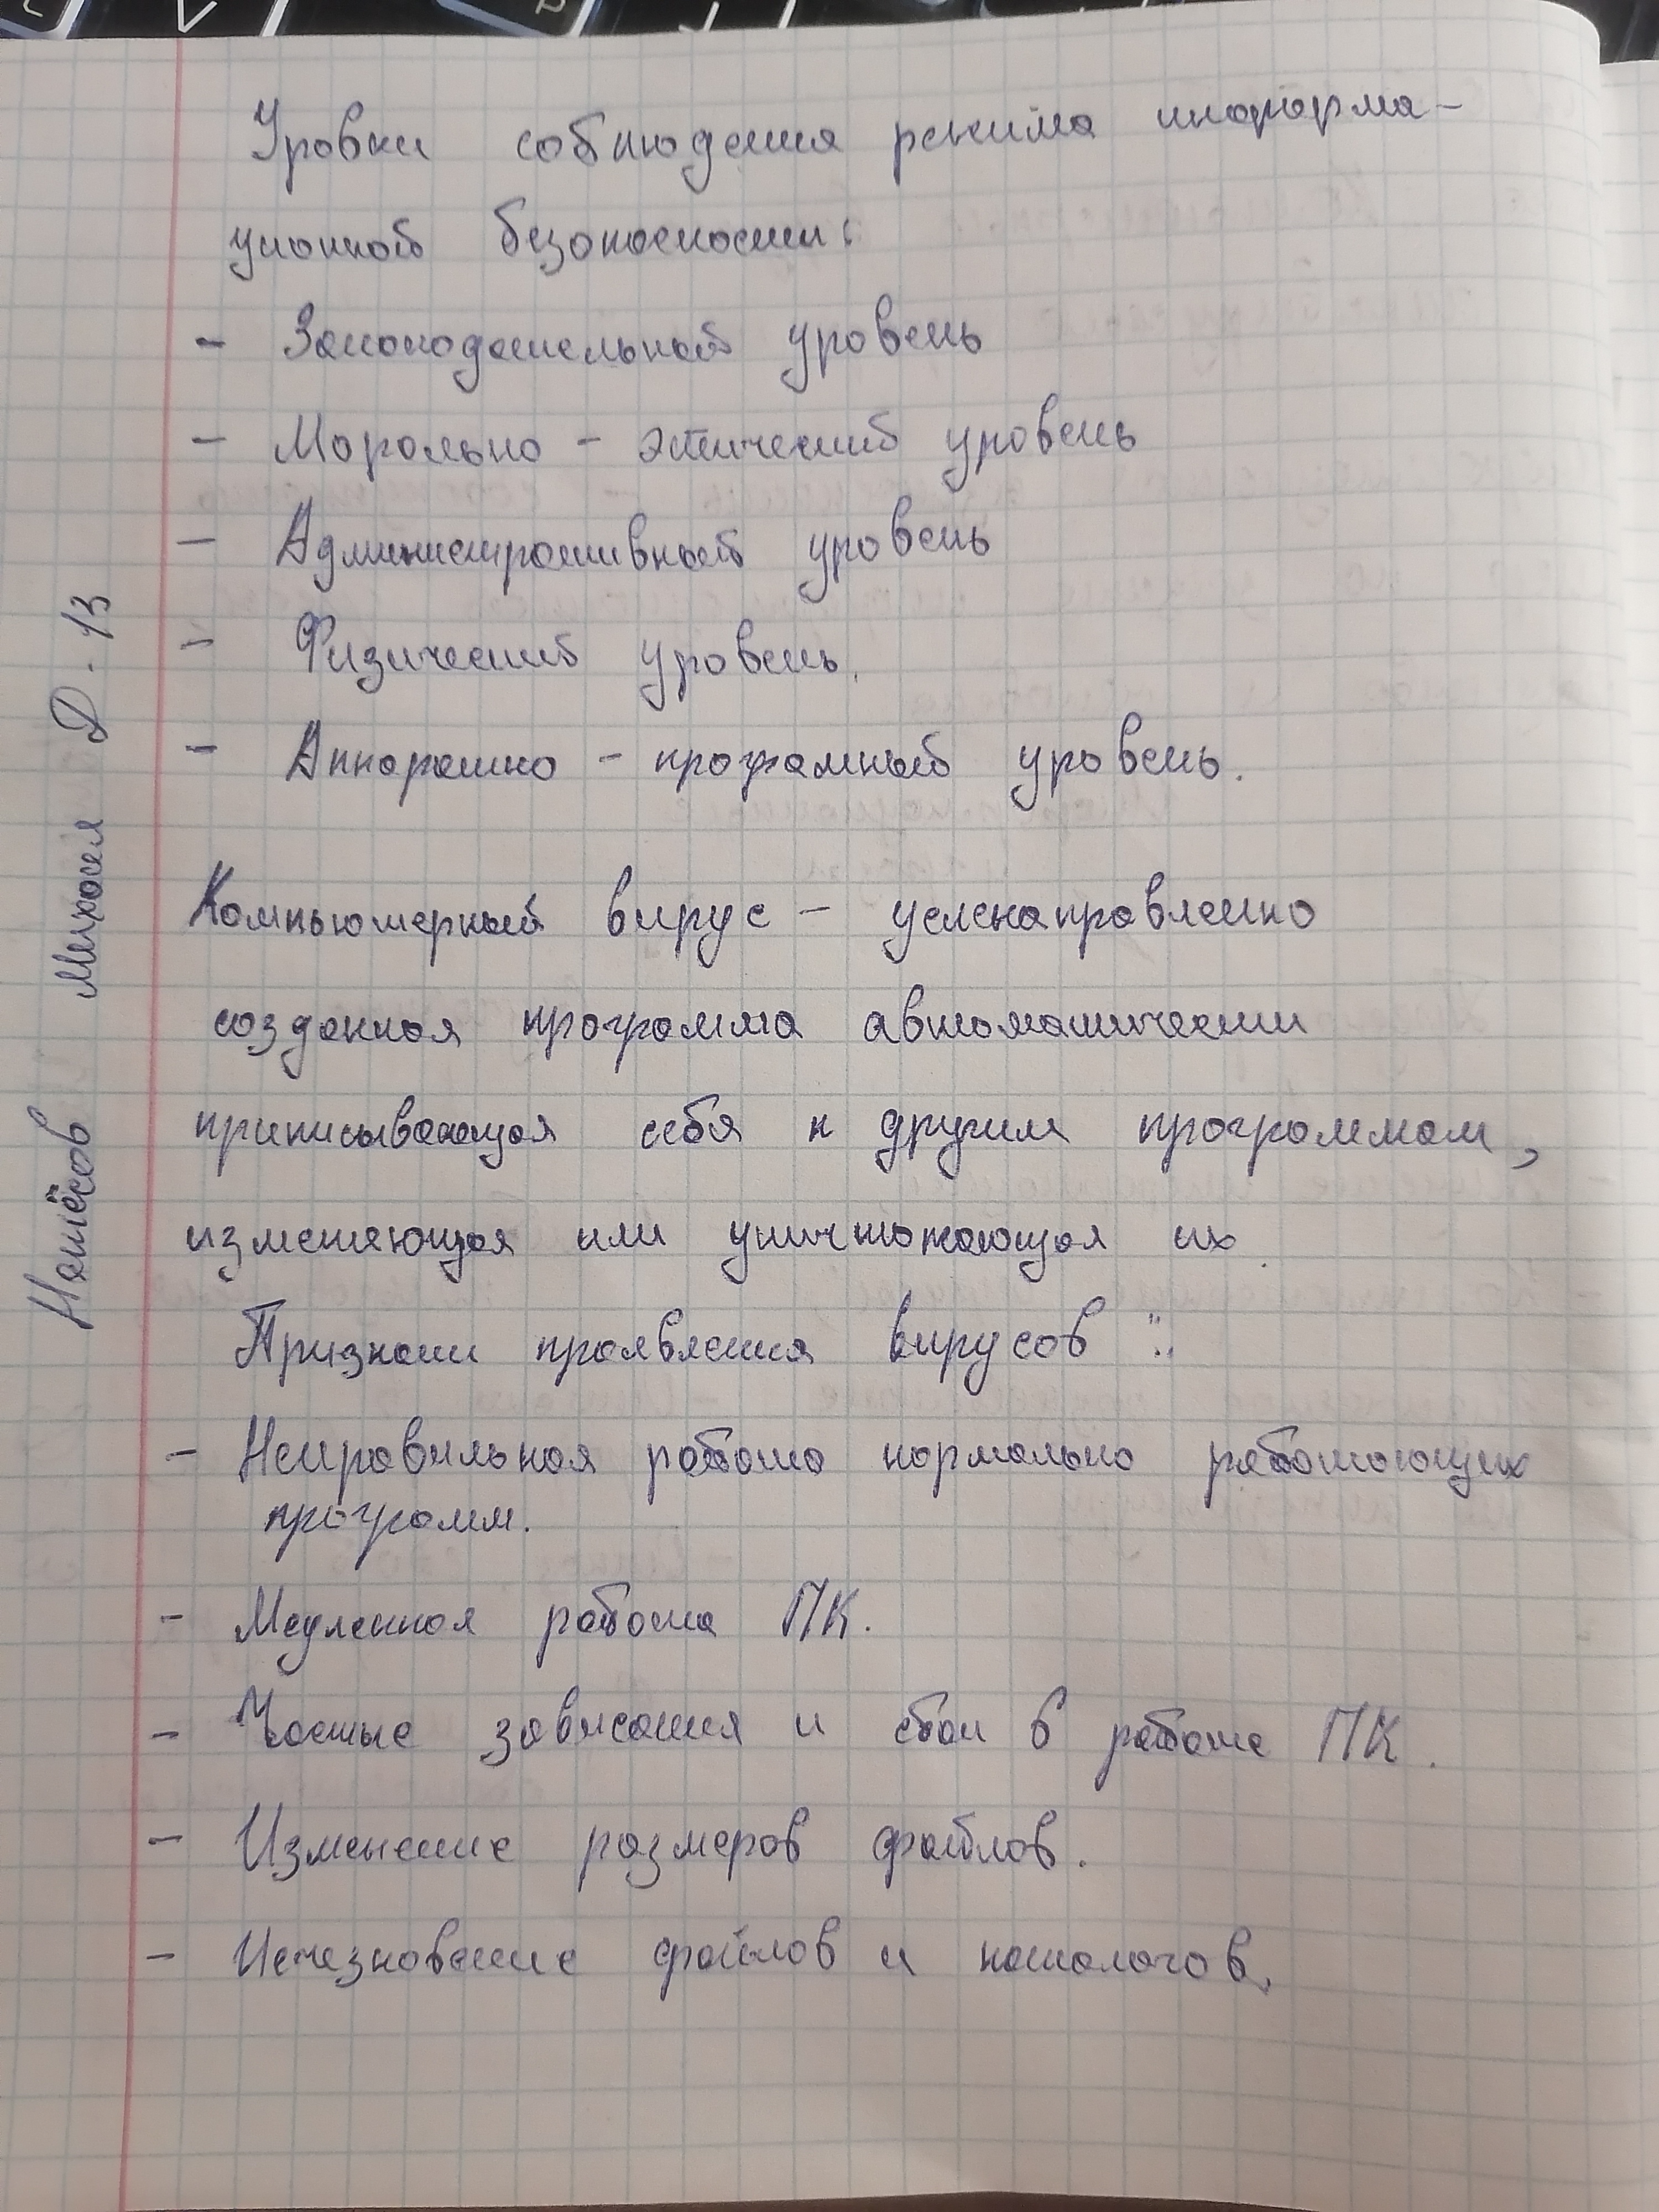 Уровни соблюдения режима информа-
ционной безопасности:
- Законодательный уровень
- Морально - этический уровень
- Административный уровень
- Физический уровень.
- Аппаратно - програмный уровень.
Компьютерный вирус - целенаправленно
созданная программа автоматически
приписывающая себя к другим программам,
изменяющая или уничтожающая их.
Признаки проявления вирусов :
- Неправильная работа нормально работающих
программ.
- Медленная работа ПК.
- Частые зависания и сбои в работе ПК.
- Изменение размеров файлов.
- Исчезновение файлов и каталогов.
Михаел Д. 13